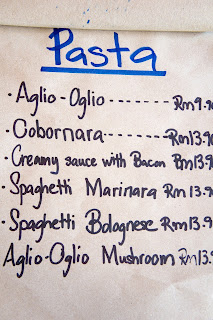 Pasta
· Aglio-Oglio ------- Rm9.90
· Cobornara ----- Rm13.90
· Creamy sauce with Bacon Rm13.9
· Spaghetti Marinara Rm13.9
· Spaghetti Bolognese Rm13.9
Aglio-Oglio Mushroom Rm13.9